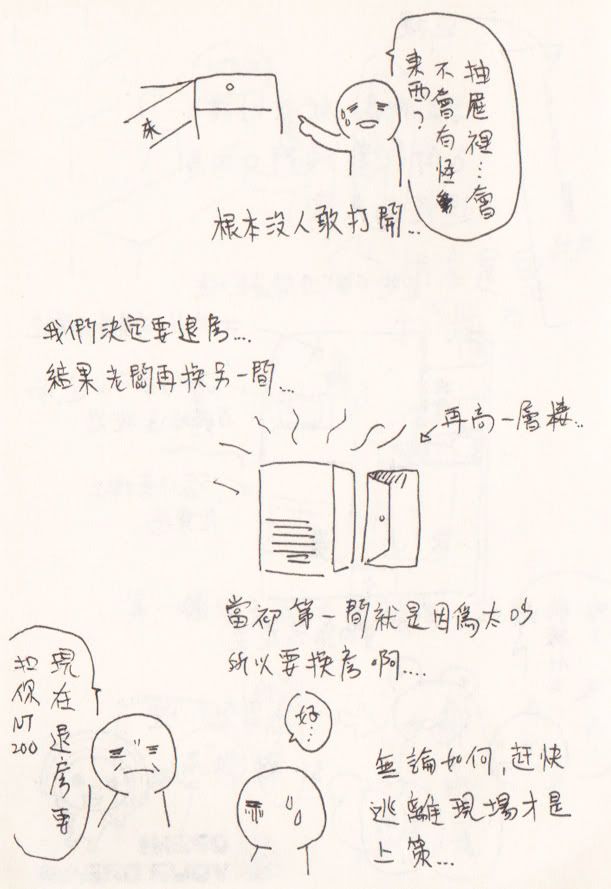 抽屜裡…會
不會有怪
東西?
床
根本沒人敢打開...
我們決定要退房...
結果老闆再換另一間...
再高一層樓..
當初第一間就是因為太吵
所以要換房啊....
現在退房要
扣你NT
200
好...
無論如何,赶快
逃離現場才是
上策...